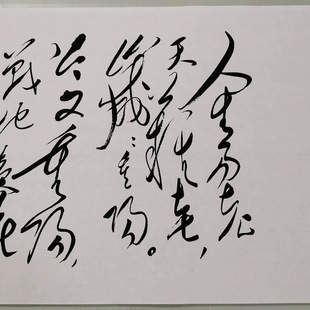 人生易老
天難老，
歲々重陽。
今又重陽，
戰地黄花